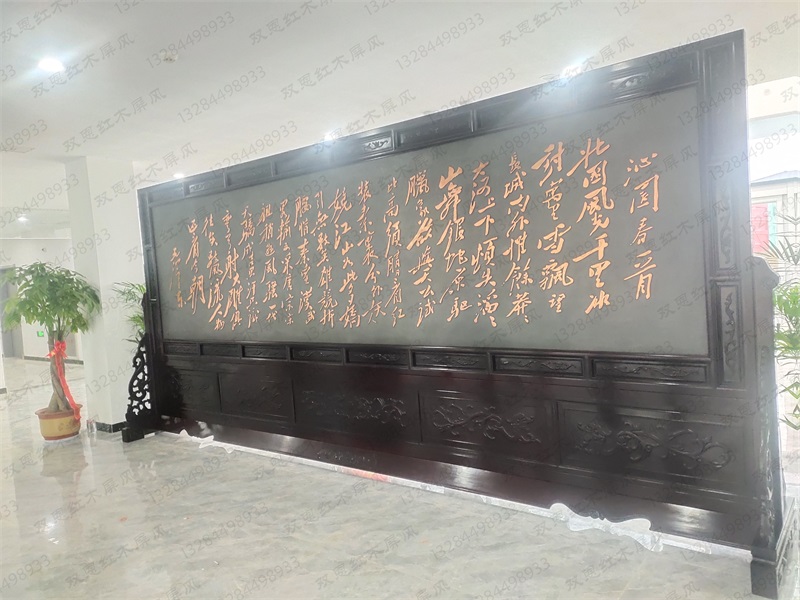 沁园春 雪
北国风光千里冰
封万里雪飘望
長城内外惟餘莽〻
大河上下顿失滔〻
山舞银蛇原驰
臘象欲與天公试
比高须晴看红
装素裹分外妖
娆江山如此多娇
引无数英雄竞折
腰惜秦皇汉武
略输文采唐宗宋
祖稍逊风骚一代
天骄成吉思汗只识
弯弓射大雕俱
往矣数风流人物
还看今朝
毛泽东
双恩红木屏风
13284498933